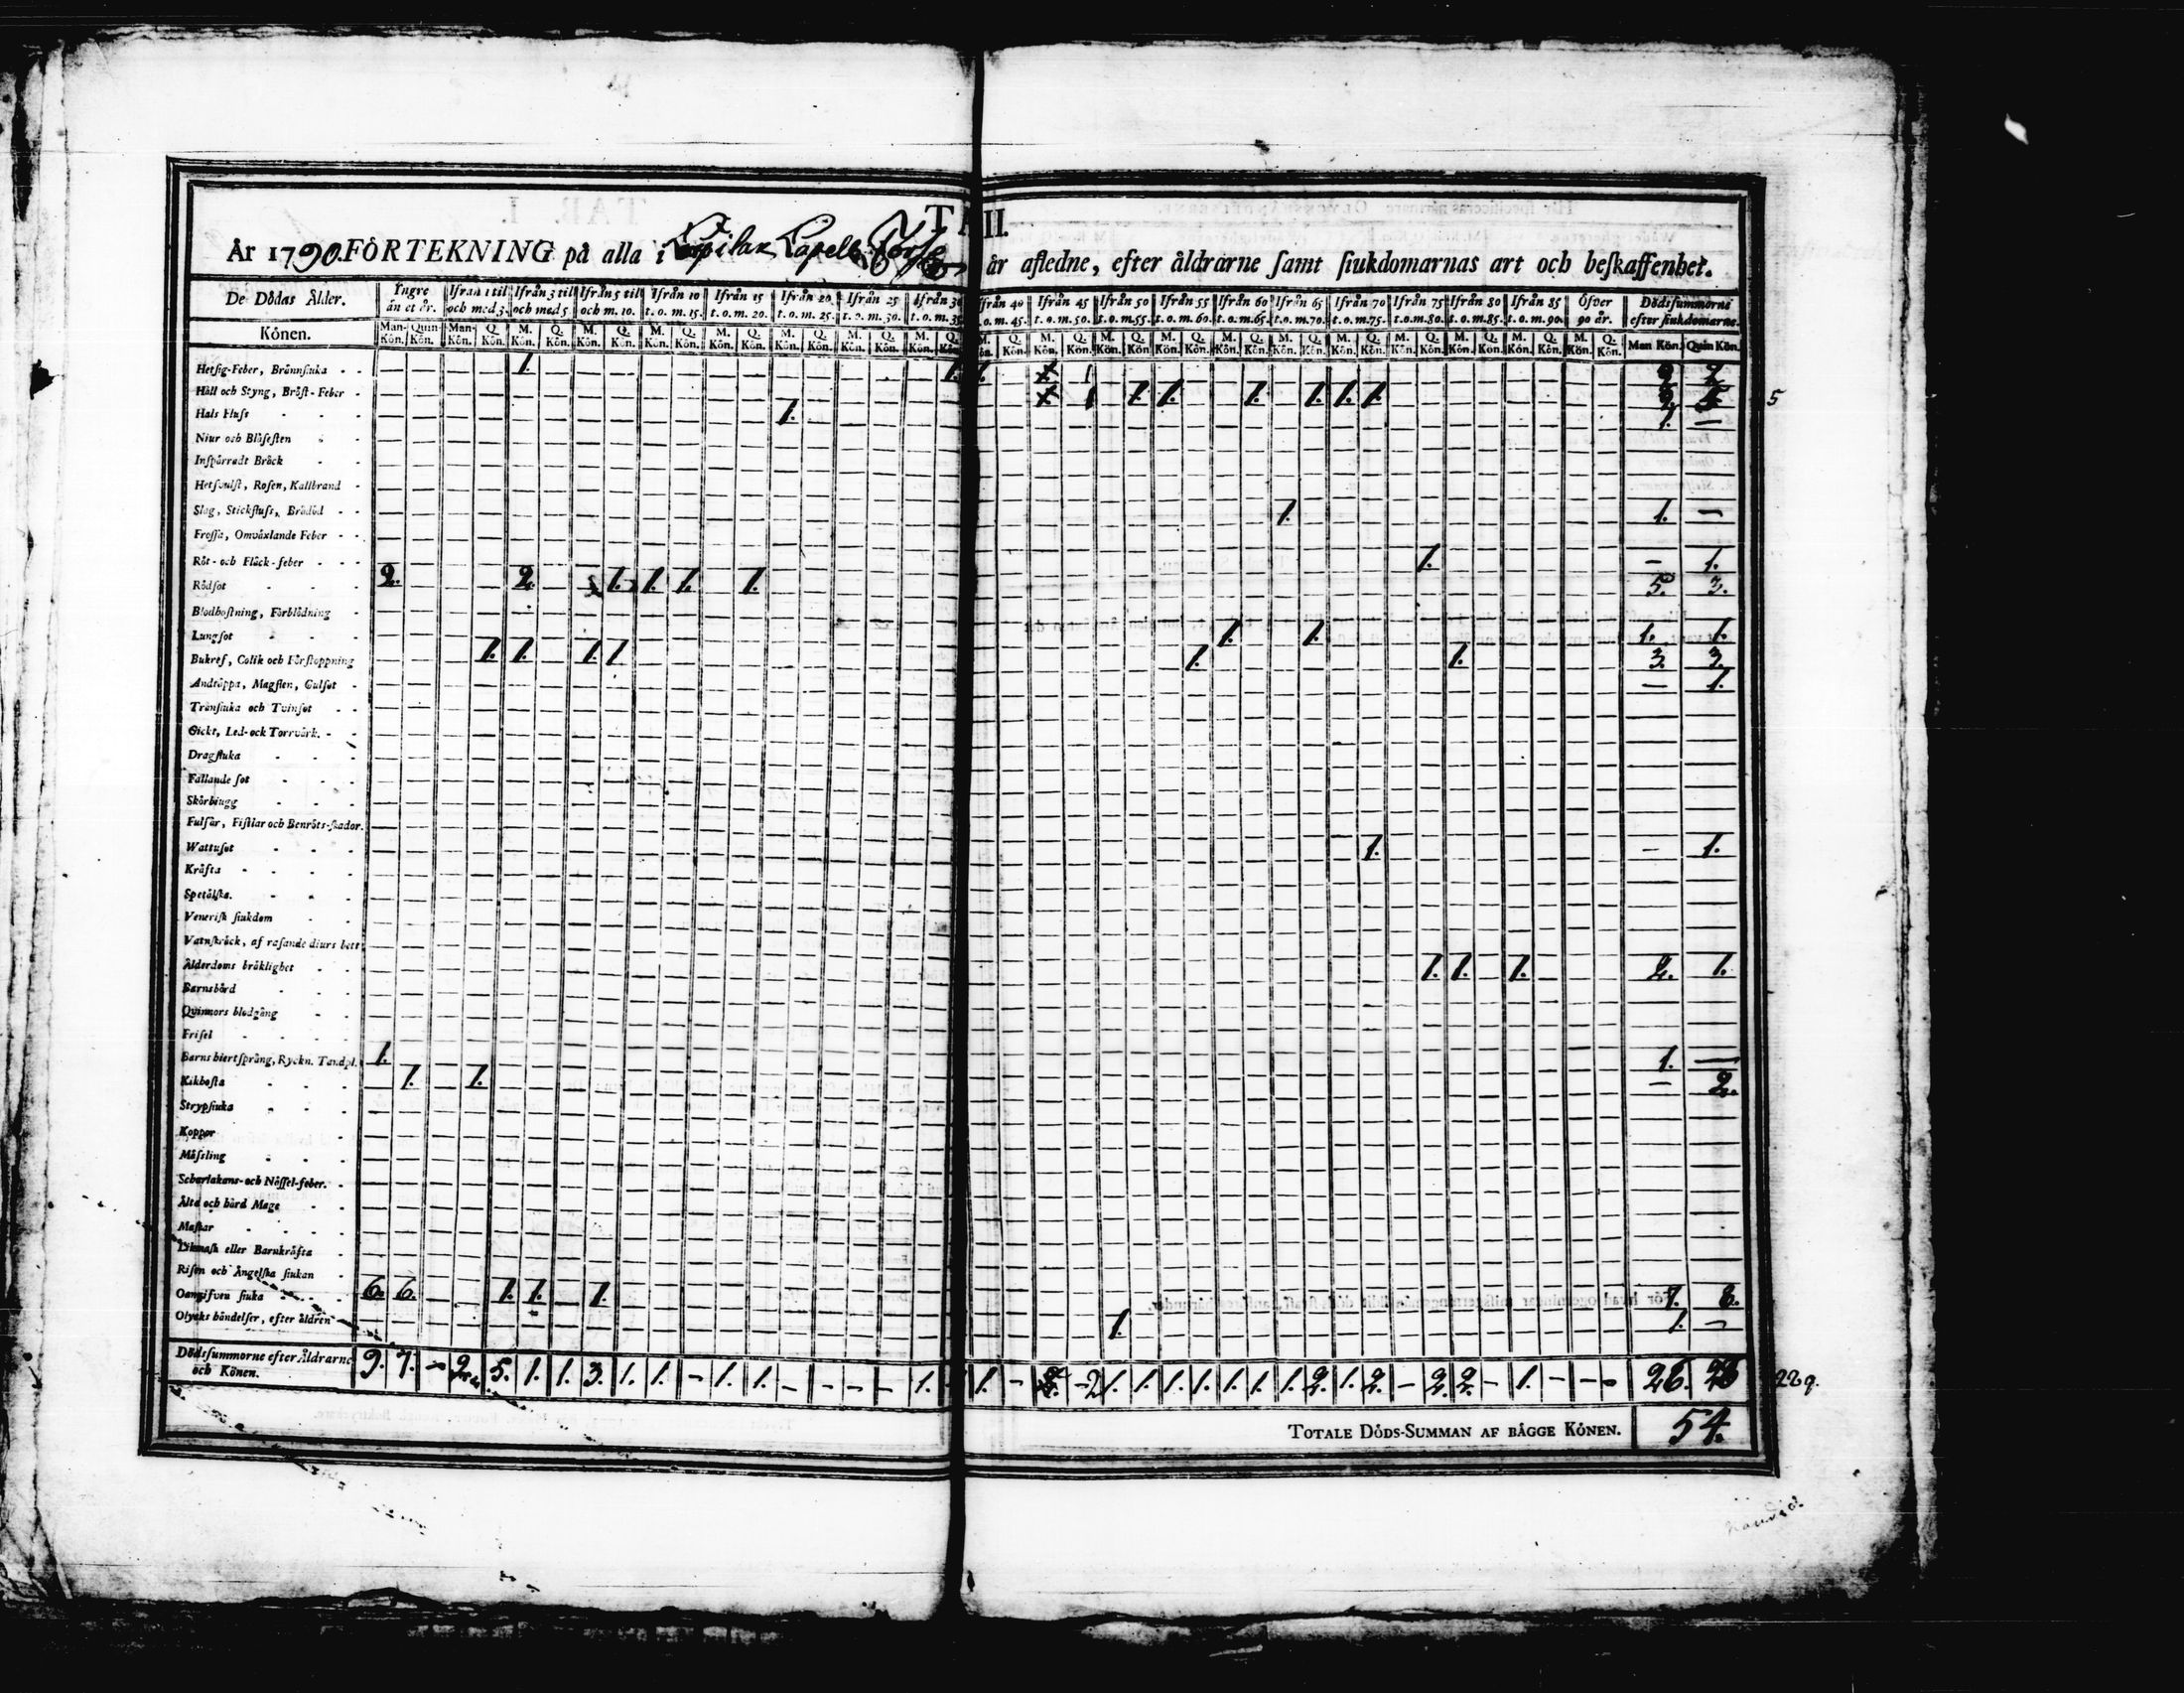 TAB. II.
År 1790. FÖRTEKNING på alla i Capell år afledne, efter åldrarne samt siukdomarnas art och beskaffenhet.
De Dödas Ålder. Yngre än et år. Ifrån 1 til och med 3. Ifrån 3 til och med 5. Ifrån 5 til och m. 10. Ifrån 10 t. o. m. 15. Ifrån 15 t. o. m. 20. Ifrån 20 t. o. m. 25. Ifrån 25 t. o. m. 30. Ifrån 30 t. o. m. 35. Ifrån 40 t. o. m. 45. Ifrån 45 t. o. m. 50. Ifrån 50 t. o. m. 55. Ifrån 55 t. o. m. 60. Ifrån 60 t. o. m. 65. Ifrån 65 t. o. m. 70. Ifrån 70 t. o. m. 75. Ifrån 75 t. o. m. 80. Ifrån 80 t. o. m. 85. Ifrån 85 t. o. m. 90. Öfver 90 år. Dödssummorne efter siukdomarne.
Könen. Man-Kön. Quin Kön. Man-Kön. Q. Kön. M. Kön. Q. Kön. M. Kön. Q. Kön. M. Kön. Q. Kön. M. Kön. Q. Kön. M. Kön. Q. Kön. M. Kön. Q. Kön. M. Kön. Q. Kön. M. Kön. Q. Kön. M. Kön. Q. Kön. M. Kön. Q. Kön. M. Kön. Q. Kön. M. Kön. Q. Kön. M. Kön. Q. Kön. M. Kön. Q. Kön. M. Kön. Q. Kön. M. Kön. Q. Kön. M. Kön. Q. Kön. M. Kön. Q. Kön. Man Kön. Quin Kön.
Hetsig-Feber, Brännsiuka 1. 1. 1.
Håll och Styng, Bröst-Feber 1. 1. 1. 1. 1. 1. 5
Hals Fluss 1. 1. —
Niur och Blåsesten
Inspärradt Bråck
Hetsvulst, Rosen, Kallbrand
Slag, Stickfluss, Brådöd 1. 1. —
Frossa, Omväxlande Feber
Röt- och Fläck-feber 1. — 1.
Rödsot 2. 2. 1. 1. 1. 1. 5. 3.
Blodhostning, Förblödning
Lungsot 1. 1. 1. 1.
Bukref, Colik och Förstoppning 1. 1. 1. 1 1. 1. 3. 3.
Andtäppa, Magsten, Gulsot — 1.
Trånsiuka och Tvinsot
Gickt, Led- ock Torrvärk.
Dragsiuka
Fallande sot
Skörbiugg
Fulsår, Fistlar och Benröts-skador.
Wattusot 1. — 1.
Kräfta
Spetälska.
Venerisk siukdom
Vatnskräck, af rasande diurs bett
Ålderdoms bräklighet 1. 1. 1. 2. 1.
Barnsbörd
Quinnors blodgång
Frisel
Barns hiertsprång, Ryckn. Tandpl. 1. 1. —
Kikhosta 1. 1. — 2.
Strypsiuka
Koppor
Mässling
Scharlakans- och Nässel-feber.
Älta och hård Mage
Maskar
Likmask eller Barnkräfta
Risen och Ängelska siukan
Oangifven siuka 6. 6. 1. 1. 1. 7. 8.
Olycks händelser, efter åldren 1. 1. —
Dödssummorne efter Åldrarne och Könen. 9. 7. — 2. 5. 1. 1. 3. 1. 1. — 1. 1. — — — — 1. 1. — 2 1. 1. 1. 1. 1. 1. 1. 2. 1. 2. — 2. 2. — 1. — — — 26.
TOTALE DÖDS-SUMMAN AF BÄGGE KÖNEN. 54.